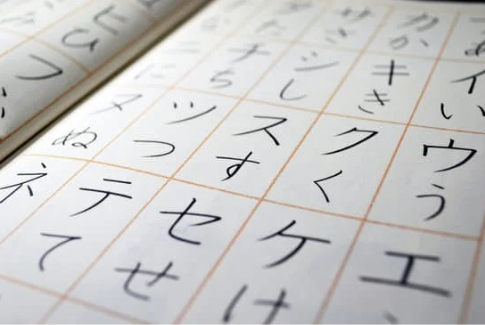 あイいウうエ
カかキきクくケけ
サさシしスすセせ
タたチちツつテて
にヌぬネ
ヒひフ